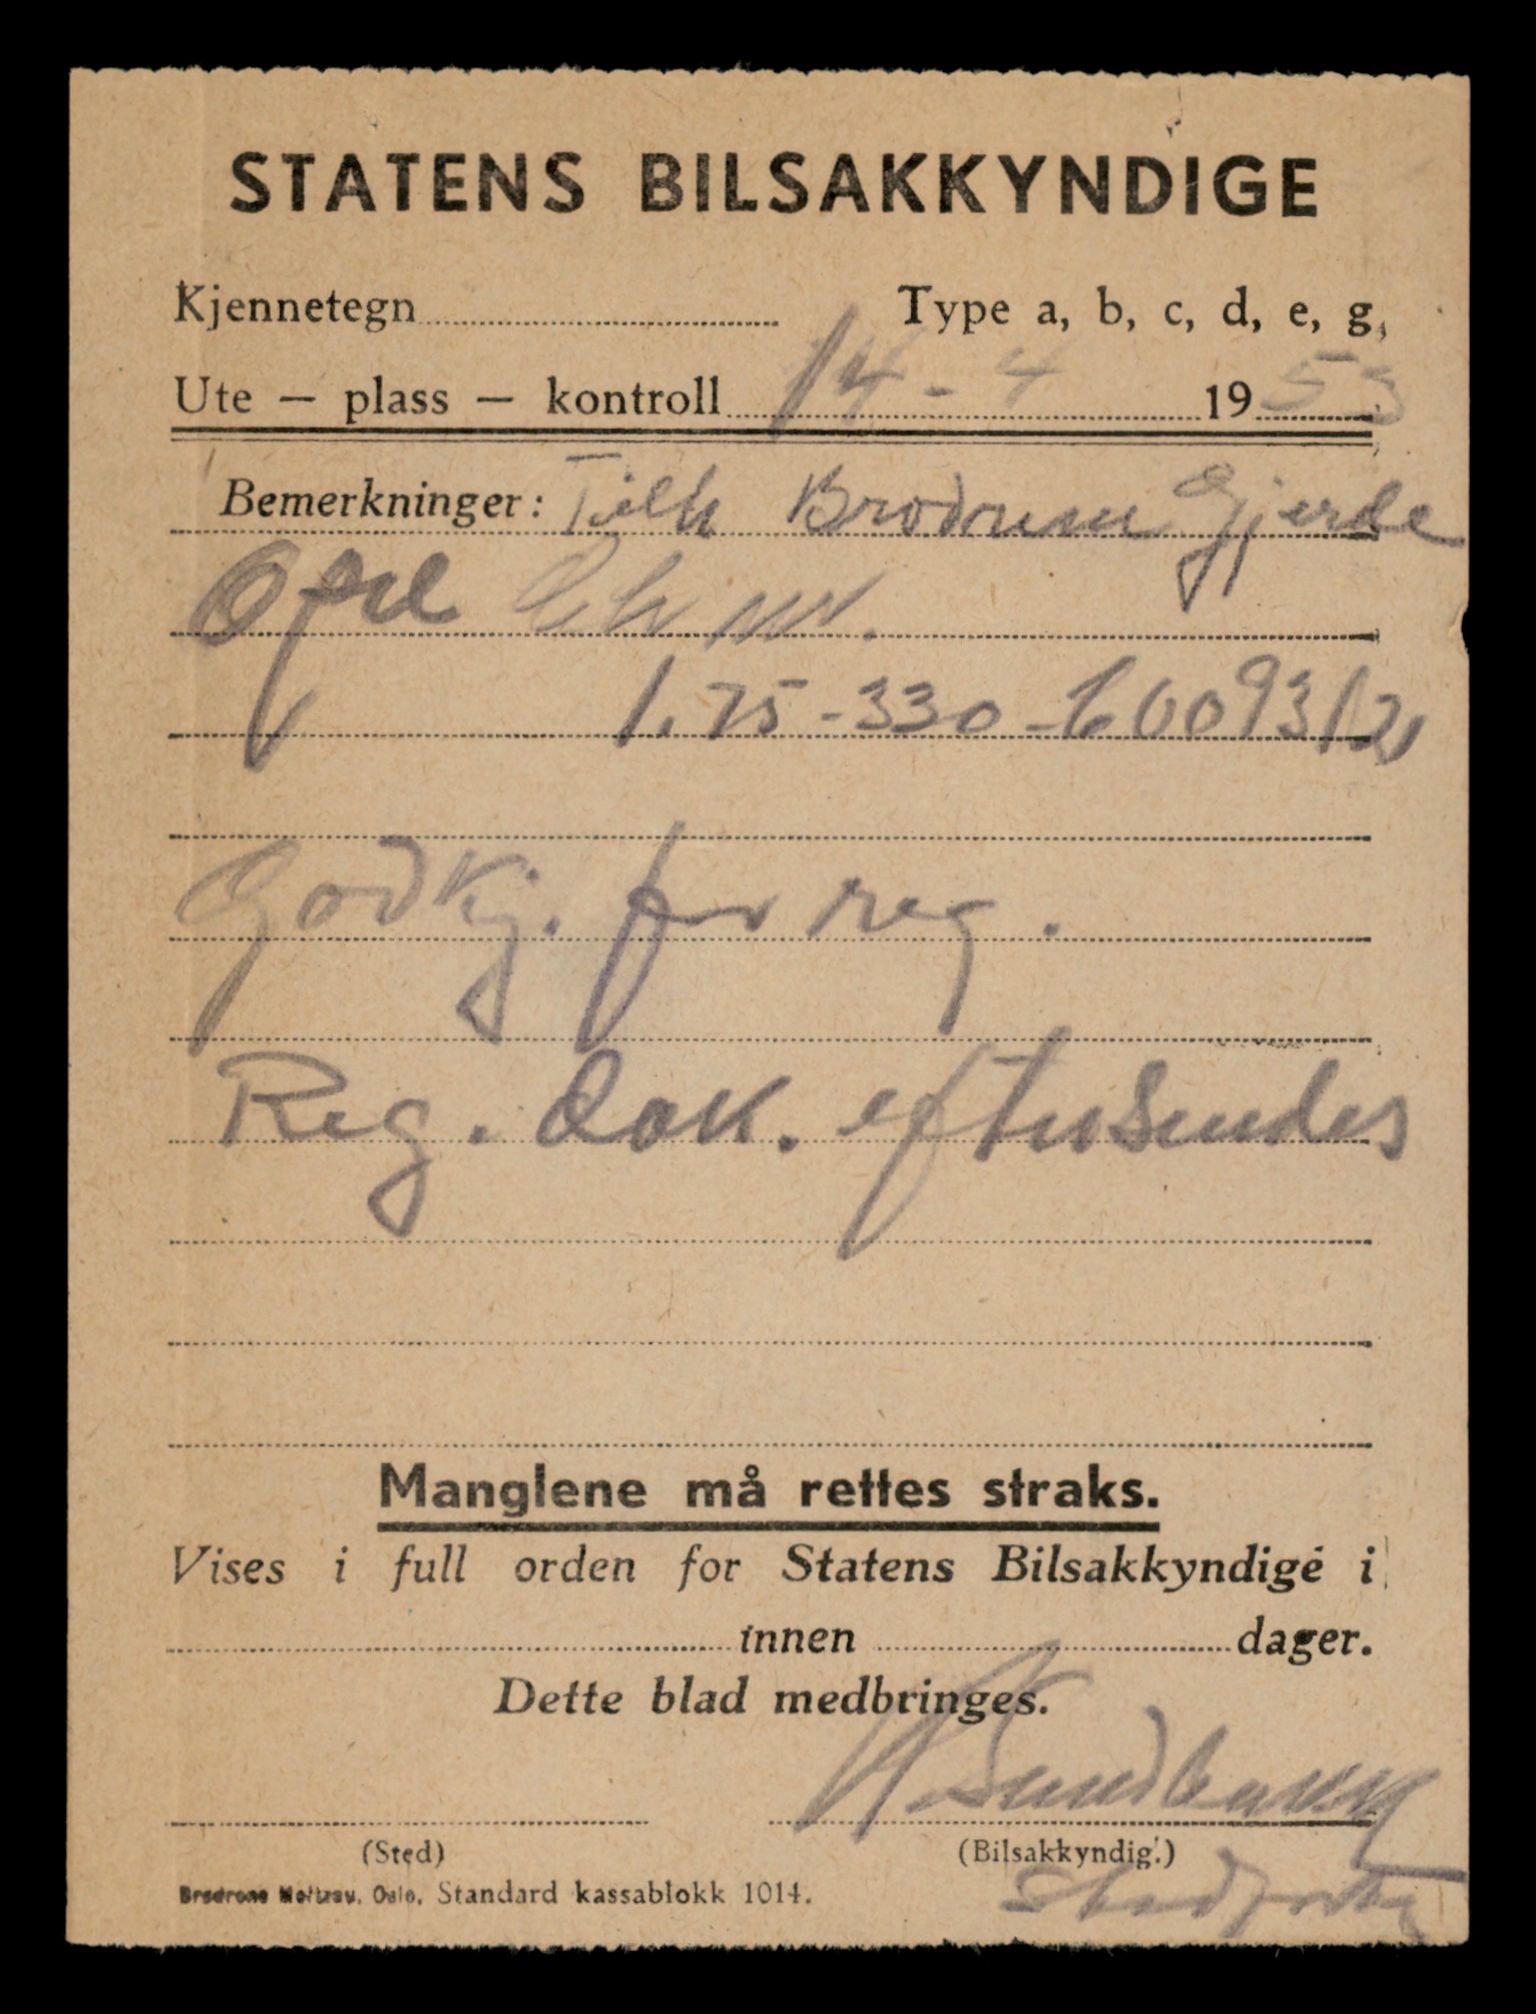 STATENS BILSAKKYNDIGE
Kjennetegn Type a, b, c, d, e, g,
Ute — plass — kontroll 14 - 4 1953
Bemerkninger: Tilh Brødrene Gjerde
Opel Ch nr.
1.75-330-6009312
Godkj. for reg.
Reg. Dok. eftersendes
Manglene må rettes straks.
Vises i full orden for Statens Bilsakkyndige i
innen dager.
Dette blad medbringes.
(Sted) (Bilsakkyndig.)
Oslo, Standard kassablokk 1014.